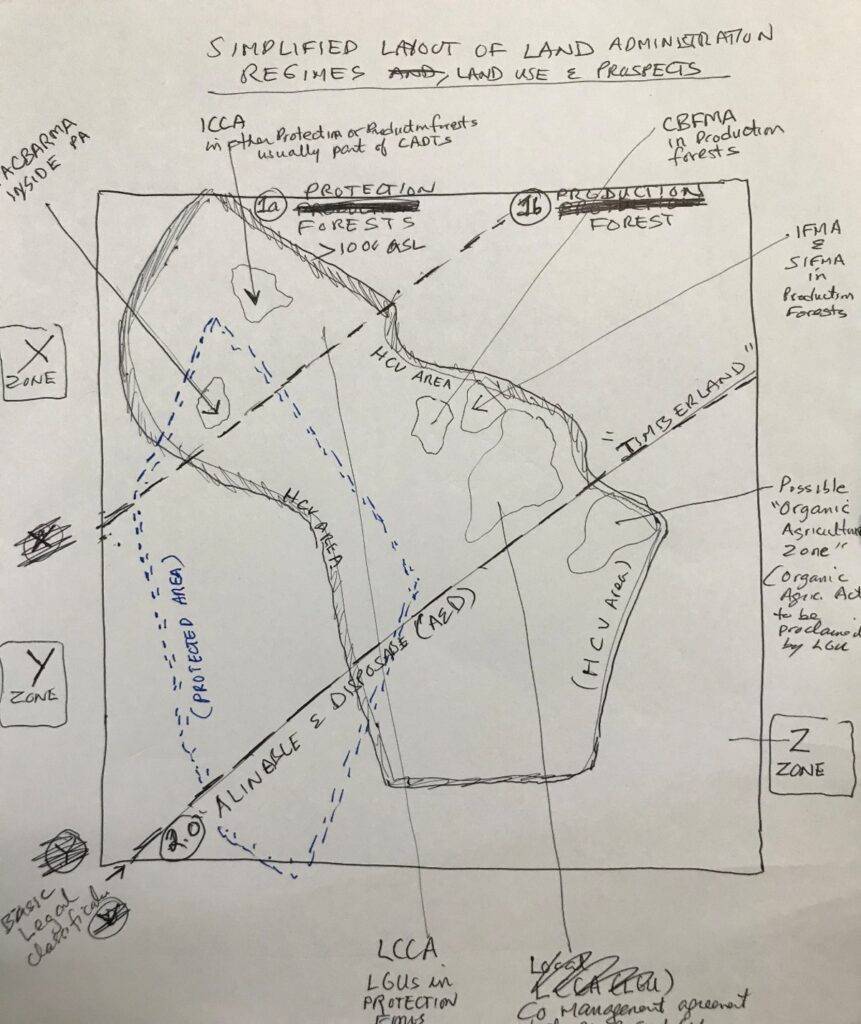 SIMPLIFIED LAYOUT OF LAND ADMINISTRATION
REGIMES AND, LAND USE & PROSPECTS
ACBARMA
INSIDE PA
ICCA
in other Protection or Production forests
usually part of CADTS
CBFMA
in Production
forests
1a
PROTECTION
FORESTS
>1000 ASL
1b
PRODUCTION
FOREST
IFMA
&
SIFMA
in
Production
Forests
X
ZONE
HCV AREA
"TIMBERLAND"
HCV AREA
Possible
"Organic
Agriculture
Zone"
(Organic
Agric. Act
to be
proclaimed
by LGU
(PROTECTED AREA)
(HCV Area)
Y
ZONE
ALINABLE & DISPOSABLE (A&D)
Z
ZONE
2.0
Basic
Legal
LCCA
LGUs in
PROTECTION
Local
Co Management agreement